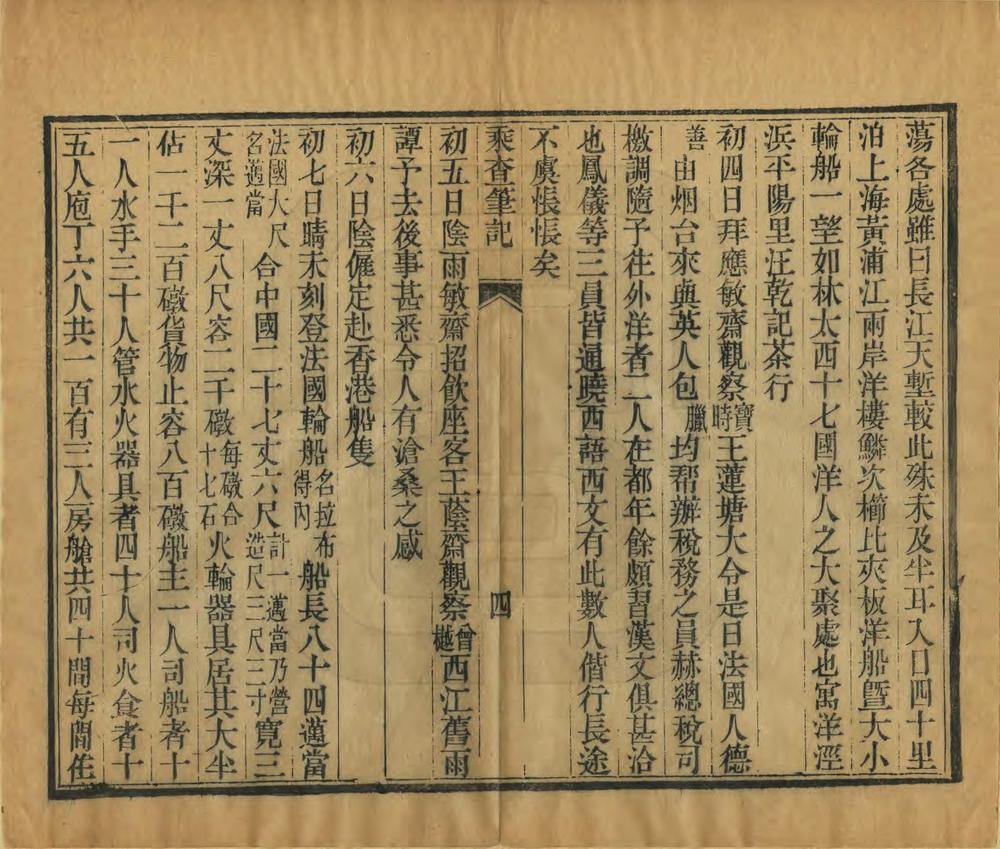 蕩各處雖曰長江天塹較此殊未及半耳入口四十里
泊上海黃浦江兩岸洋樓鱗次櫛比夾板洋船暨大小
輪船一望如林太西十七國洋人之大聚處也寓洋涇
浜平陽里汪乾記茶行
初四日拜應敏齋觀察寶時王蓮塘大令是日法國人德
善由烟台來與英人包臘均帮辦稅務之員赫總稅司
檄調隨予往外洋者二人在都年餘頗習漢文俱甚洽
也鳳儀等三員皆通曉西語西文有此數人偕行長途
不虞悵悵矣
乘查筆記 四
初五日陰雨敏齋招飲座客王蔭齋觀察曾樾西江舊雨
譚予去後事甚悉令人有滄桑之感
初六日陰僱定赴香港船隻
初七日晴未刻登法國輪船名拉布得內船長八十四邁當
法國大尺名邁當合中國二十七丈六尺計一邁當乃營造尺三尺三寸寬三
丈深一丈八尺容二千礅每礅合十七石火輪器具居其大半
佔一千二百礅貨物止容八百礅船主一人司船者十
一人水手三十人管水火器具者四十人司火食者十
五人庖丁六人共一百有三人房艙共四十間每間住